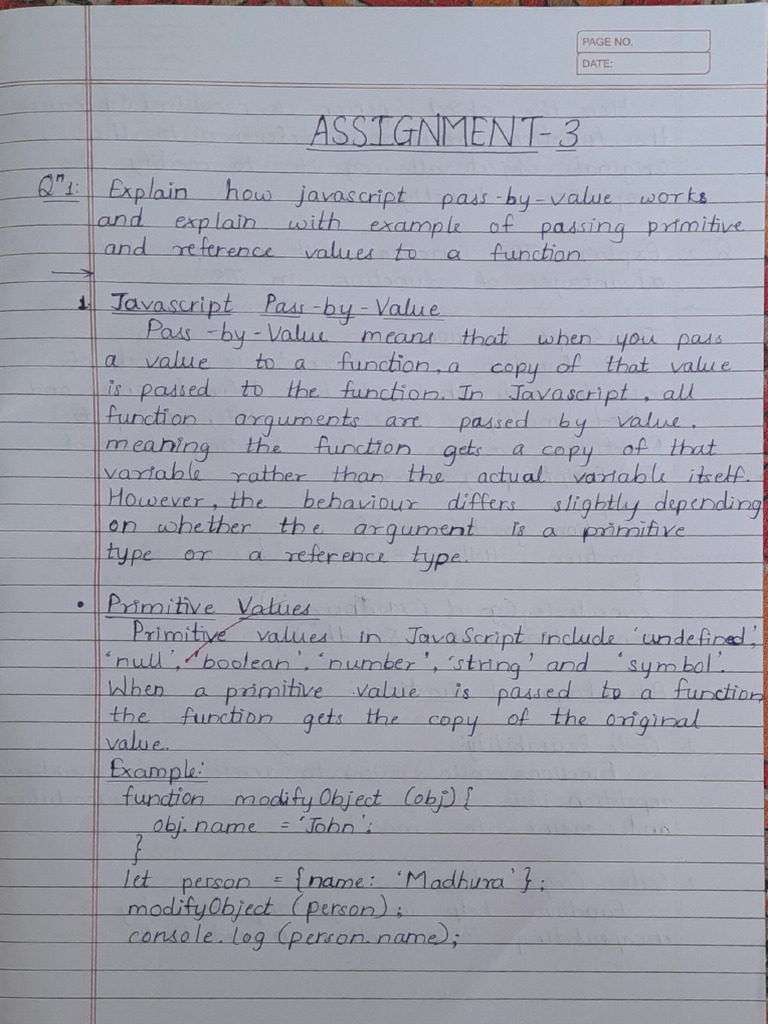 PAGE NO.
DATE:
ASSIGNMENT-3
Qn 1: Explain how javascript pass-by-value works
and explain with example of passing primitive
and reference values to a function.
→
1. Javascript Pass-by-Value
Pass-by-Value means that when you pass
a value to a function, a copy of that value
is passed to the function. In Javascript, all
function arguments are passed by value,
meaning the function gets a copy of that
variable rather than the actual variable itself.
However, the behaviour differs slightly depending
on whether the argument is a primitive
type or a reference type.
• Primitive Values
Primitive values in JavaScript include 'undefined',
'null', 'boolean', 'number', 'string' and 'symbol'.
When a primitive value is passed to a function
the function gets the copy of the original
value.
Example:
function modifyObject (obj) {
obj.name = 'John';
}
let person = {name: 'Madhura'};
modifyObject (person);
console.log (person.name);